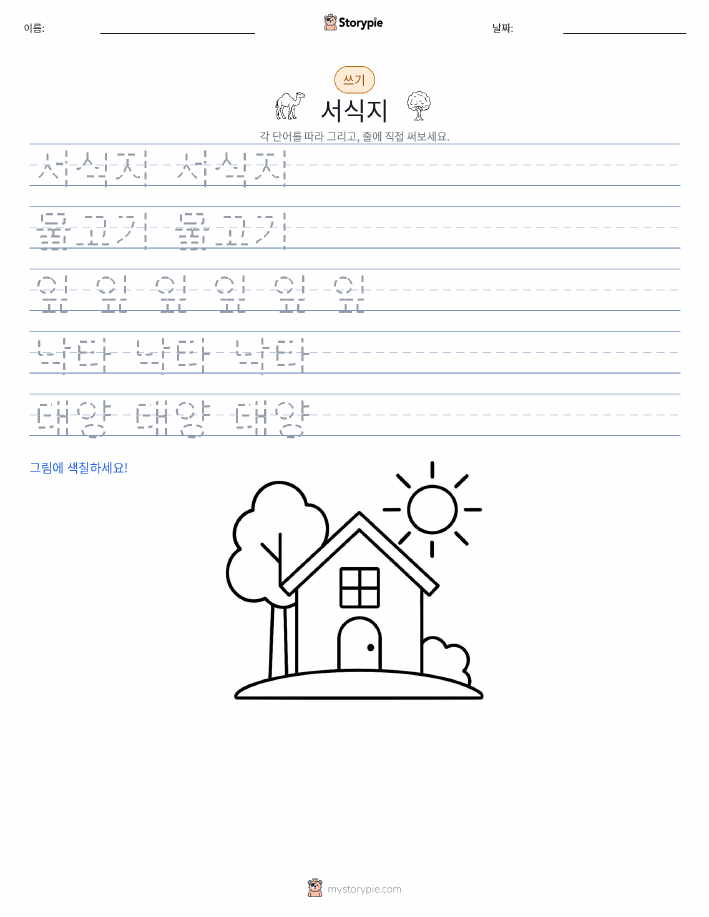 이름:
Storypie
날짜:
쓰기
서식지
각 단어를 따라 그리고, 줄에 직접 써보세요.
서식지 서식지
물고기 물고기
잎 잎 잎 잎 잎 잎
낙타 낙타 낙타
태양 태양 태양
그림에 색칠하세요!
mystorypie.com